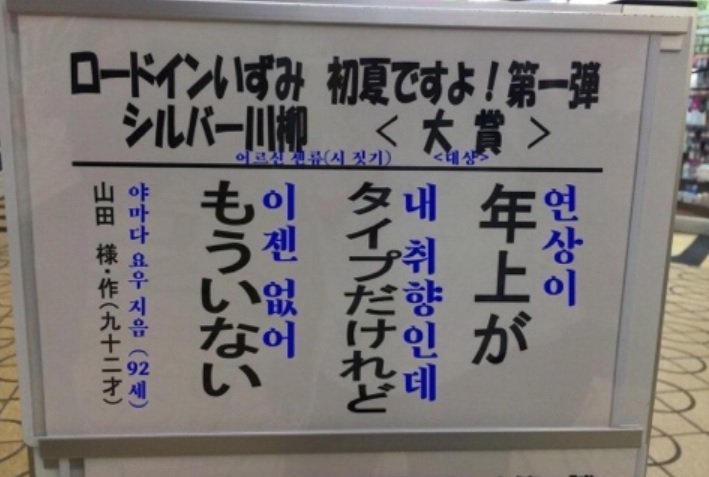 ロードインいずみ 初夏ですよ！第一弾
シルバー川柳 <大賞>
어르신 센류(시 짓기) <대상>
연상이
年上が
내 취향인데
タイプだけれど
이젠 없어
もういない
야마다 요우 지음 (92세)
山田 様・作(九十二才)